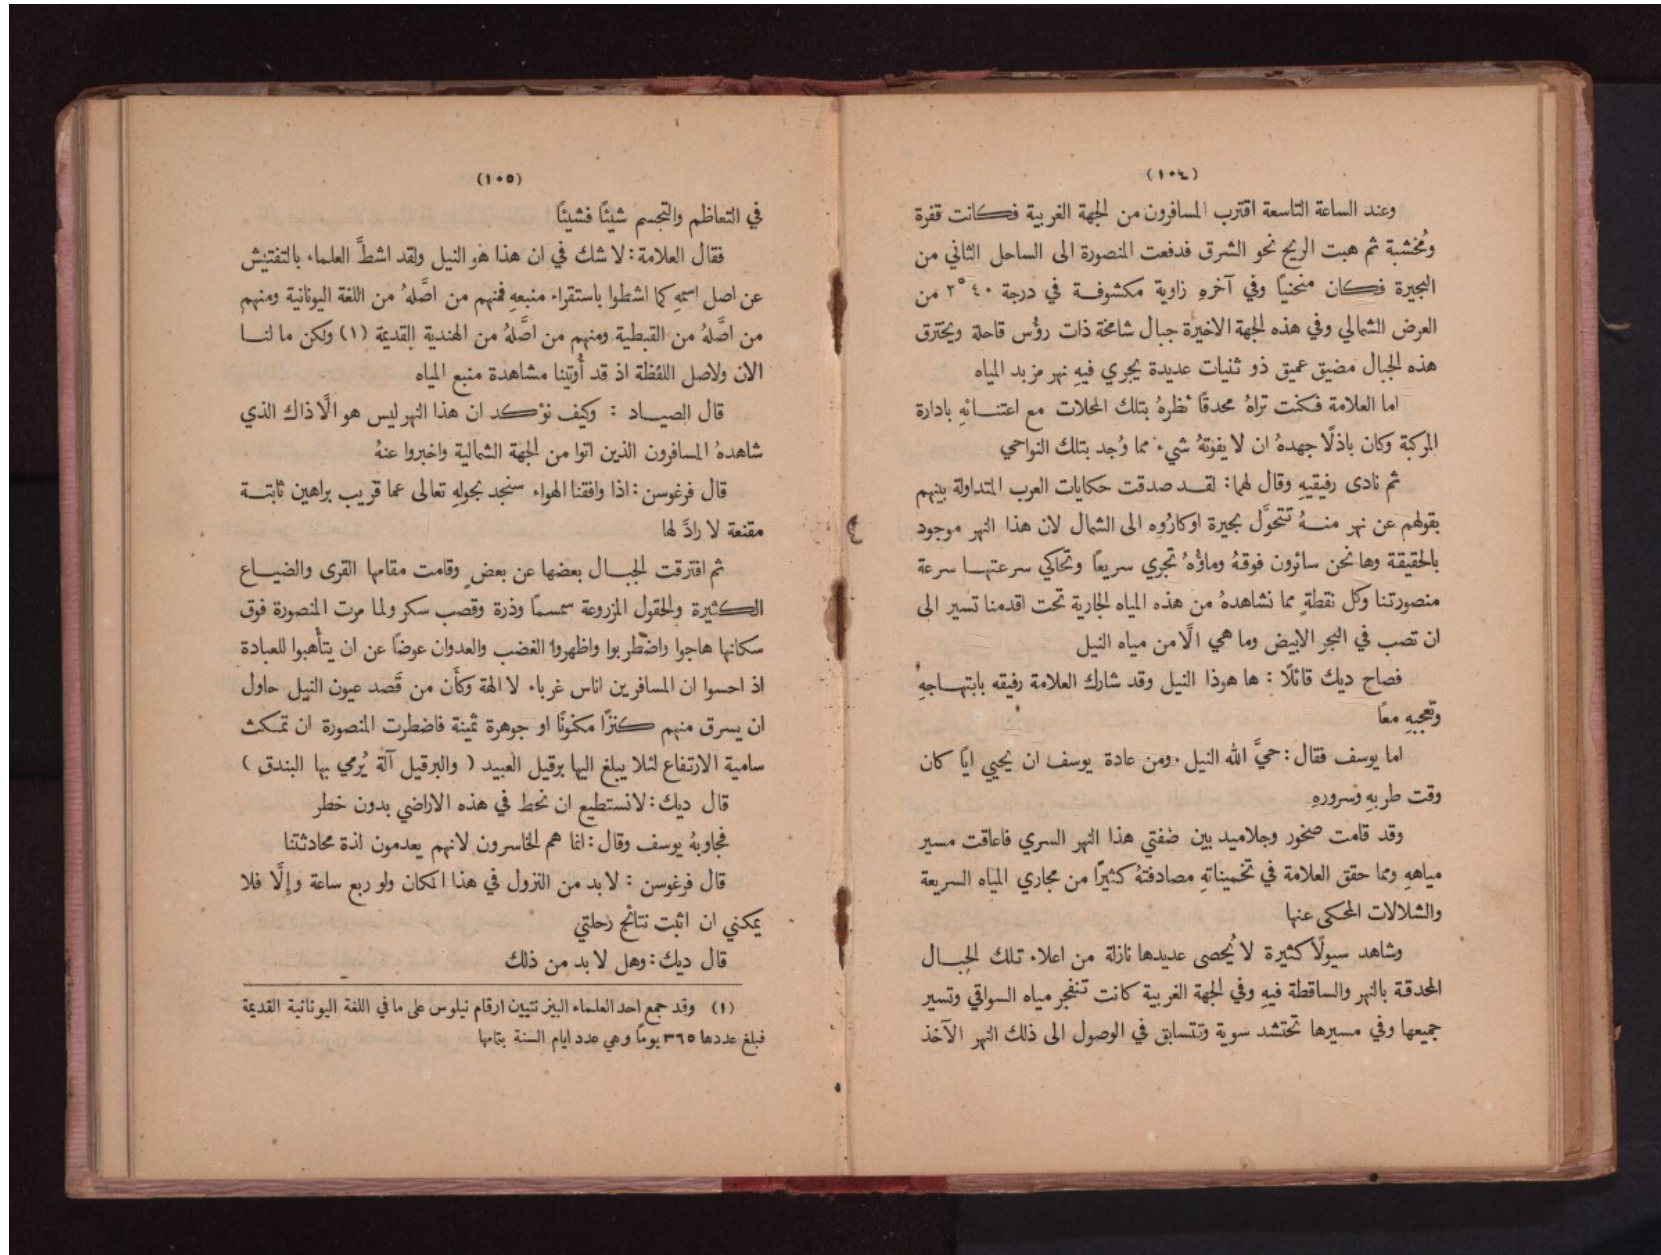 (١٠٤)
وعند الساعة التاسعة اقترب المسافرون من الجهة الغربية فكانت قفرة
ومُخشبة ثم هبت الريح نحو الشرق فدفعت المنصورة الى الساحل الثاني من
البحيرة فكان منحنياً وفي آخرهِ زاوية مكشوفة في درجة ٤٠ °٢ من
العرض الشمالي وفي هذه الجهة الاخيرة جبال شامخة ذات رؤُس قاحلة ويخترق
هذه الجبال مضيق عميق ذو ثنيات عديدة يجري فيهِ نهر مزبد المياه
اما العلامة فكنت تراهُ محدقاً نظرهُ بتلك المحلات مع اعتنائهِ بادارة
المركبة وكان باذلًا جهدهُ ان لا يفوتهُ شيء مما وُجد بتلك النواحي
ثم نادى رفيقيهِ وقال لهما: لقد صدقت حكايات العرب المتداولة بينهم
بقولهم عن نهر منهُ تتحوَّل بحيرة اوكارُوِه الى الشمال لان هذا النهر موجود
بالحقيقة وها نحن سائرون فوقهُ وماؤُهُ تجري سريعاً وتحاكي سرعتها سرعة
منصورتنا وكل نقطةٍ مما نشاهدهُ من هذه المياه الجارية تحت اقدمنا تسير الى
ان تصب في البحر الابيض وما هي الَّا من مياه النيل
فصاح ديك قائلًا: ها هوذا النيل وقد شارك العلامة رفيقه بابتهاجهِ
وتعجبهِ معاً
اما يوسف فقال: حيَّ الله النيل. ومن عادة يوسف ان يحيي ايًا كان
وقت طربهِ وسرورهِ
وقد قامت صخور وجلاميد بين ضفتي هذا النهر السري فاعاقت مسير
مياههِ ومما حقق العلامة في تخميناتهِ مصادفتهُ كثيرًا من مجاري المياه السريعة
والشلالات المحكى عنها
وشاهد سيولًا كثيرة لا يُحصى عديدها نازلة من اعلاء تلك الجبال
المحدقة بالنهر والساقطة فيهِ وفي الجهة الغربية كانت تنفجر مياه السواقي وتسير
جميعها وفي مسيرها تحتشد سوية وتتسابق في الوصول الى ذلك النهر الآخذ
(١٠٥)
في التعاظم والتجسم شيئًا فشيئًا
فقال العلامة: لا شك في ان هذا هو النيل ولقد اشطَّ العلماء بالتفتيش
عن اصل اسمهِ كما اشطوا باستقراء منبعهِ فمنهم من اصَّلهُ من اللغة اليونانية ومنهم
من اصَّلهُ من القبطية ومنهم من اصَّلهُ من الهندية القديمة (١) ولكن ما لنا
الان ولاصل اللفظة اذ قد أُوتينا مشاهدة منبع المياه
قال الصياد: وكيف نوْكد ان هذا النهر ليس هو الَّا ذاك الذي
شاهدهُ المسافرون الذين اتوا من الجهة الشمالية واخبروا عنهُ
قال فرغوسن: اذا وافقنا الهواء سنجد بحولهِ تعالى عما قريب براهين ثابتة
مقنعة لا رادَّ لها
ثم افترقت الجبال بعضها عن بعض وقامت مقامها القرى والضياع
الكثيرة والحقول المزروعة سمسماً وذرة وقصب سكر ولما مرت المنصورة فوق
سكانها هاجوا واضطربوا واظهروا الغضب والعدوان عوضاً عن ان يتأهبوا للعبادة
اذ احسوا ان المسافرين اناس غرباء لا الهة وكأَن من قَصد عيون النيل حاول
ان يسرق منهم كنزًا مكنونًا او جوهرة ثمينة فاضطرت المنصورة ان تمكث
سامية الارتفاع لئلا يبلغ اليها برقيل العبيد ( والبرقيل آلة يُرمي بها البندق )
قال ديك: لا نستطيع ان نحط في هذه الاراضي بدون خطر
فجاوبهُ يوسف وقال: انما هم الخاسرون لانهم يعدمون لذة محادثتنا
قال فرغوسن: لا بد من النزول في هذا المكان ولو ربع ساعة وإِلَّا فلا
يمكنني ان اثبت نتائج رحلتي
قال ديك: وهل لا بد من ذلك
(١) وقد جمع احد العلماء البيزنتيين ارقام نيلوس على ما في اللغة اليونانية القديمة
فبلغ عددها ٣٦٥ يوماً وهي عدد ايام السنة بتمامها